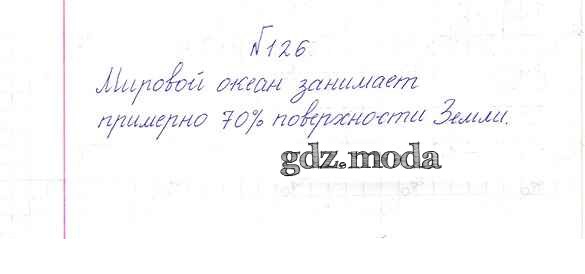 №126.
Мировой океан занимает
примерно 70% поверхности Земли.
gdz.moda